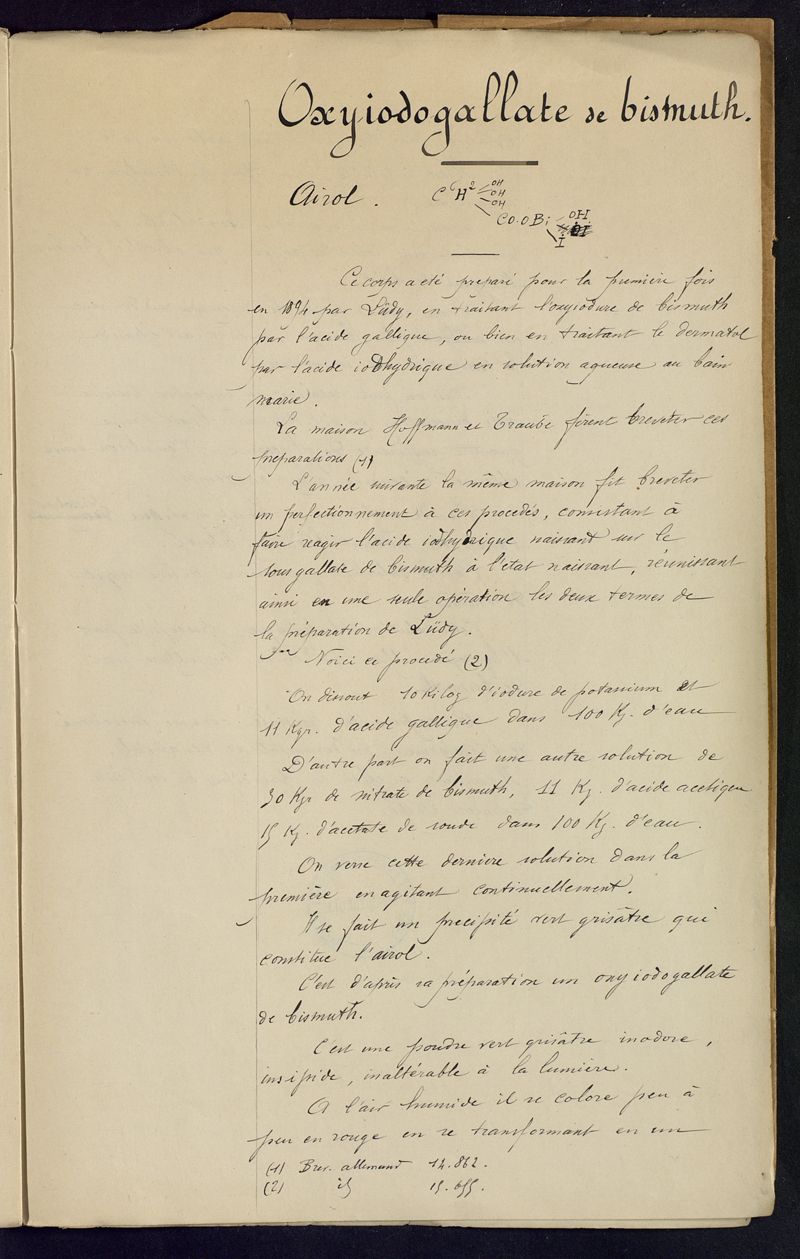 Oxyiodogallate de bismuth.
Airol. C⁶H² OH OH OH
CO.OBi OH
I
Ce corps a été préparé pour la première fois
en 1894 par Lüdy, en traitant l'oxyiodure de bismuth
par l'acide gallique, ou bien en traitant le dermatol
par l'acide iodhydrique en solution aqueuse au bain
marie.
La maison Hoffmann et Traube firent breveter ces
préparations (1)
L'année suivante la même maison fit breveter
un perfectionnement à ces procédés, consistant à
faire réagir l'acide iodhydrique naissant sur le
sous gallate de bismuth à l'état naissant, réunissant
ainsi en une seule opération les deux termes de
la préparation de Lüdy.
Voici ce procédé (2)
On dissout 10 Kilog d'iodure de potassium et
11 Kgr. d'acide gallique dans 100 Kg. d'eau
D'autre part on fait une autre solution de
30 Kgr de nitrate de bismuth, 11 Kg. d'acide acétique
15 Kg. d'acétate de soude dans 100 Kg. d'eau.
On verse cette dernière solution dans la
première en agitant continuellement.
Il se fait un precipité vert grisâtre qui
constitue l'airol.
C'est d'après sa préparation un oxyiodogallate
de bismuth.
C'est une poudre vert grisâtre inodore,
insipide, inaltérable à la lumière.
A l'air humide il se colore peu à
peu en rouge en se transformant en un
(1) Brev. allemand 14.862.
(2) id 15.655.